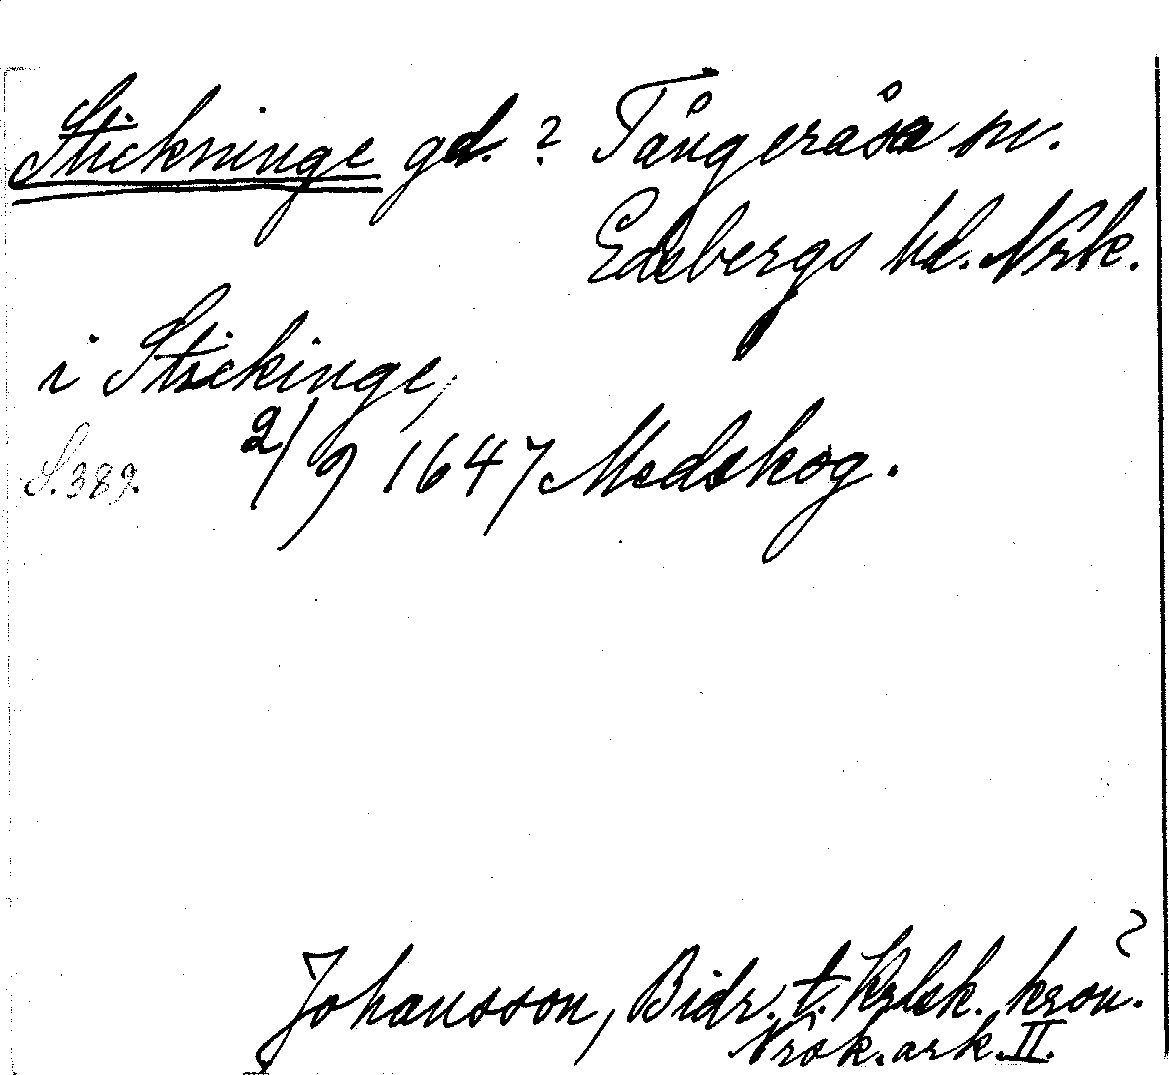 Stickninge gd. ? Tångeråsa sn.
Edsbergs hd. Nrk.
i Stickinge,
S. 389. 2/9 1647 Medskog.
Johansson, Bidr. t. Krlsk. kron. ?
Nrok. ark. II.